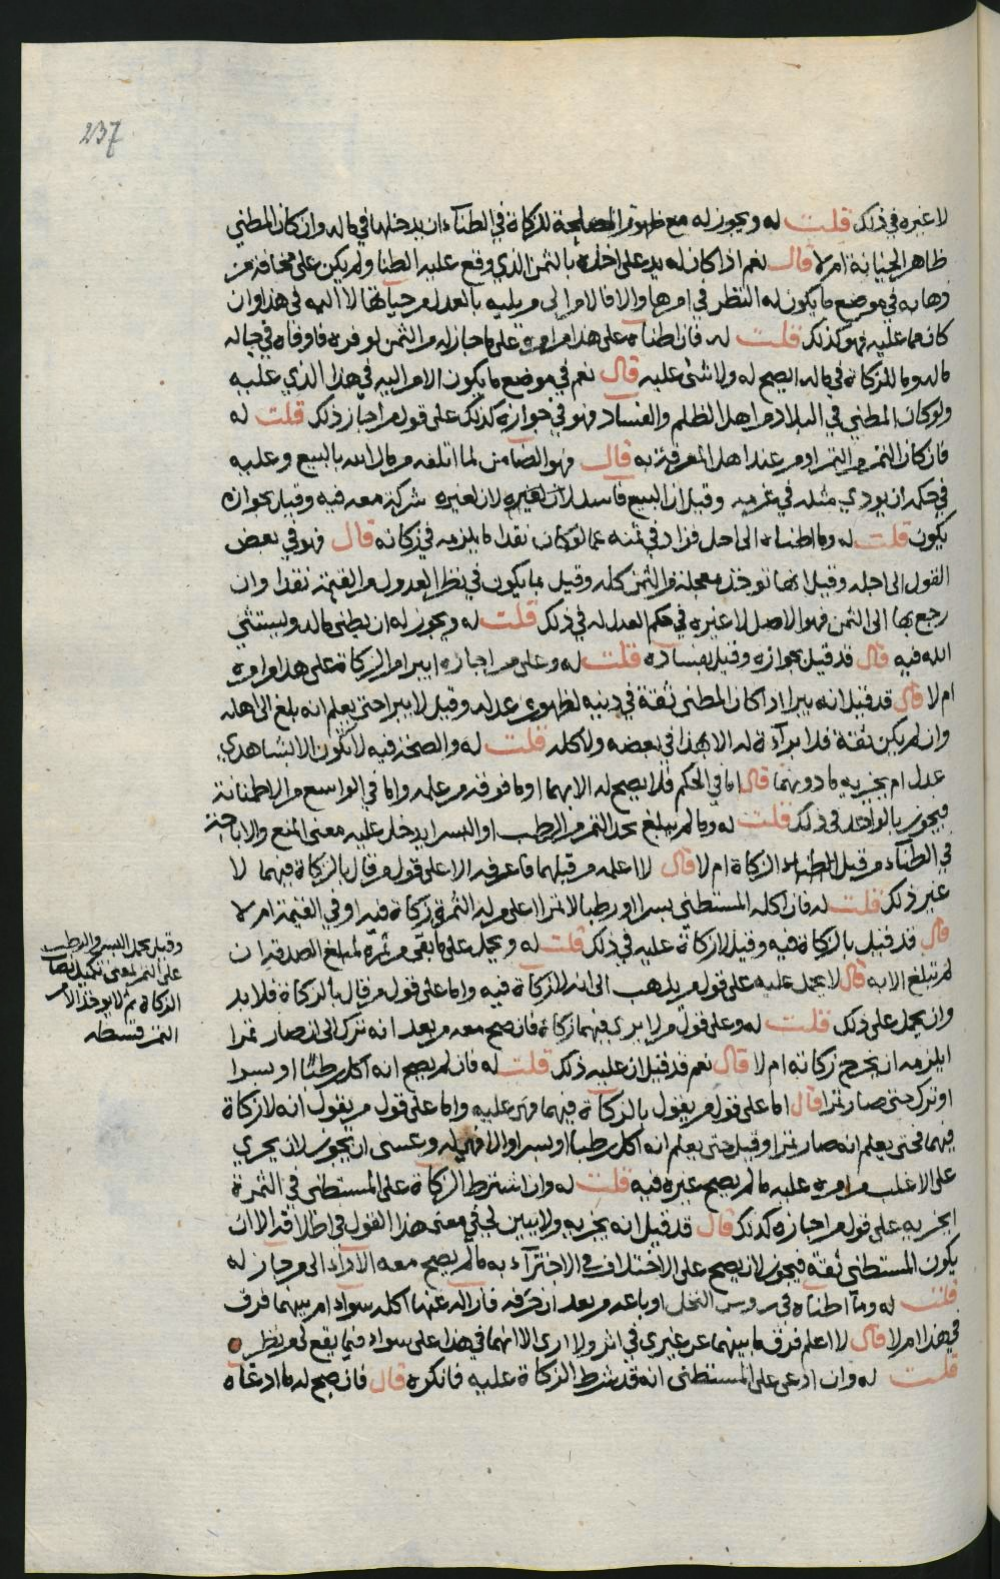 237
لا غيره في ذلك قلت له ويجوز له مع ظهور المصلحة للزكاة في الطناء ان يدخلها في ماله وان كان المطني
ظاهر الخيانة ام لا قال نعم اذا كان له يد على اخذه بالثمن الذي وقع عليه الطنا ولم يكن على مخافة من
ذهابه في موضع ما يكون له النظر في امرها والا فالامر الى من يليه بالعدل من حياتها لا اليه في هذا وان
كان مما عليه فهو كذلك قلت له فان اطناه على هذا من امره على ما جاز له من الثمن لوفره فاوفاه في حاله
ماله وما للزكاة في ماله ايصح له ولا شئ عليه قال نعم في موضع ما يكون الامر اليه في هذا الذي عليه
ولو كان المطني في البلاد من اهل الظلم والفساد فهو في جوازه كذلك على قول من اجاز ذلك قلت له
فان كان الثمن من التمر او من عند اهل المعرفة به قال فهو الضامن لما اتلفه من مال الله بالبيع وعليه
في حكمه ان يودي مثله في غرمه وقيل ان البيع فاسد لان لغيره شركة معه فيه وقيل بجوازه
يكون قلت له وما اطناه الى اجل فزاد في ثمنه عما لو كان نقدا ما يلزمه في زكاته قال فهو في بعض
القول الى اجله وقيل انها توخذ معجلة من الثمن كله وقيل بما يكون في نظر العدول من القيمة نقدا وان
رجع بها الى الثمن فهو الاصل لا غيره في حكم العدل له في ذلك قلت له ويجوز له ان يطني ماله ويستثني
الله فيه قال قد قيل بجوازه وقيل بفساده قلت له وعلى من اجازه ايبرا من الزكاة على هذا من امره
ام لا قال قد قيل انه يبرا اذا كان المطني ثقة في دينه لظهور عدله وقيل لا يبرا حتى يعلم انه بلغ الى اهله
وان لم يكن ثقة فلا براءة له الا بهذا في بعضه ولا كله قلت له والصحة فيه لا تكون الا بشاهدي
عدل ام يجزيه ما دونهما قال اما في الحكم فلا يصح له الا بهما او ما فوقه من علمه واما في الواسع من الاطمئنانة
فيجوز بالواحد في ذلك قلت له وما لم يبلغ حد التمر من الرطب او البسر ايدخل عليه معنى المنع والاباحة
في الطناء من قبل الزكاة ام لا قال لا اعلمه من قبلهما فاعرفه الا على قول من قال بالزكاة فيهما لا
غير ذلك قلت له فان اكله المستطني بسرا او رطبا لا تمرا اعلى من له الثمرة زكاة فيه او في القيمة ام لا
قال قد قيل بالزكاة فيه وقيل لا زكاة عليه في ذلك قلت له ويحمل على ما بقي من ثمره لمبلغ الصدقة ان
لم تبلغ الا به قال لا يحمل عليه على قول من يذهب الى انه لا زكاة فيه واما على قول من قال بالزكاة فلا بد
وان يحمل على ذلك قلت له وعلى قول من لا يرى فيهما زكاة فان صح معه من بعد انه ترك الى ان صار تمرا
ايلزمه ان يخرج زكاته ام لا قال نعم قد قيل ان عليه ذلك قلت له فان لم يصح انه اكل رطبا او بسرا
او ترك حتى صار تمرا قال اما على قول من يقول بالزكاة فيهما فهي عليه واما على قول من يقول انه لا زكاة
فيهما فحتى يعلم انه صار تمرا وقيل حتى يعلم انه اكل رطبا او بسرا والا فهي له وعسى ان يجوز لان يجري
على الاغلب من امره عليه ما لم يصح غيره فيه قلت له وان اشترط الزكاة على المستطني في الثمرة
ايجزيه على قول من اجازه كذلك قال قد قيل انه يجزيه ولا يبين لي في معنى هذا القول في اطلاقه الا ان
يكون المستطني ثقة فيجوز لان يصح على الاختلاف في الاجتزاء به ما لم يصح معه الاداء الى من جاز له
قلت له وما اطناه في روس النخل او باعه من بعد ان جزفه فازاله عنهما اكله سواء ام بينهما فرق
في هذا ام لا قال لا اعلم فرق ما بينهما عن غيري في اثر ولا ارى الا انهما في هذا على سواء فيما يقع لي من نظر
قلت له وان ادعى على المستطني انه قد شرط الزكاة عليه فانكره قال فان صح له ما ادعاه
وقيل يحمل البسر والرطب
على التمر لمعنى تكميل نصاب
الزكاة ثم لا يوخذ الا من
التمر قسطه